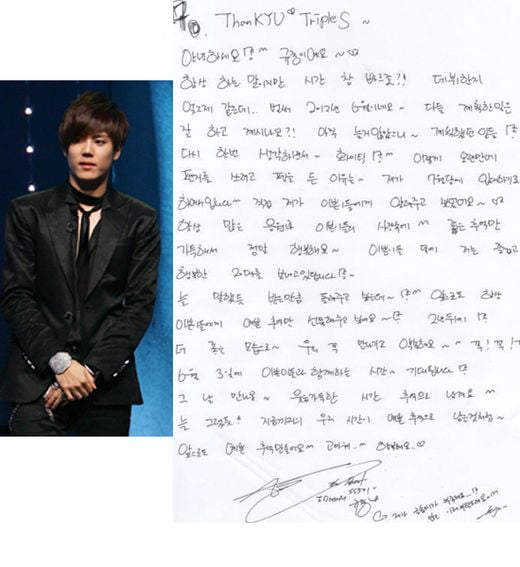 To. ThanKYU♡ TripleS ~
안녕하세요!? ^^ 규종이에요 ~ ♡
항상 하는 말이지만 시간 참 빠르죠?! 데뷔한지
엊그제 같은데.. 벌써 2012년 6월이네요~ 다들 계획한일은
잘 하고 계시나요?! 아직 늦지않았으니~ 계획했던 일들
다시 한번 생각하셔서~ 화이팅!? ^^ 이렇게 오랜만에
편지를 쓰려고 펜을 든 이유는~ 제가 7월달에 입대하기로
직접 제가 이쁜이들에게 알려주고 싶었어요~
항상 많은 응원과 이쁜이들의 사랑속에^^ 좋은 추억만
가득해서 정말 행복해요~ 이쁜이들 덕에 저는 즐겁고
행복한 20대를 보내고있답니다!?~
늘 말했듯 받은만큼 돌려주고 싶은데~ 앞으로도 항상
이쁜이들에게 예쁜 추억만 선물해주고 싶어요~!? 2년뒤에!?
더 좋은 모습으로~ 우리 꼭 만나기로 약속해요~^^ 꼭! 꼭!?
6월 3일에 이쁜이들과 함께하는 시간~ 기대됩니다!?
그 날 만나요~ 웃음가득한 시간 추억으로 남겨요^^
늘 그랬듯! 지금까지의 우리 시간이 예쁜 추억으로 남은것처럼~
앞으로도 예쁜 추억만들어요^^ 고마워..^^ 사랑해요..♡
SS501-
규종